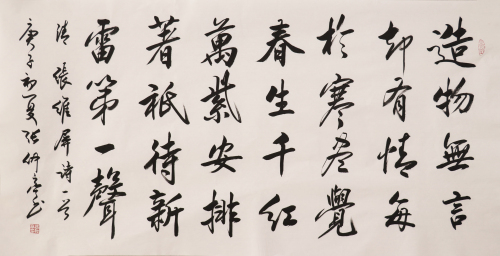 造物無言
却有情每
於寒尽覺
春生千紅
萬紫安排
著祇待新
雷第一聲
清張維屏诗一首
庚子初夏張仲亭书